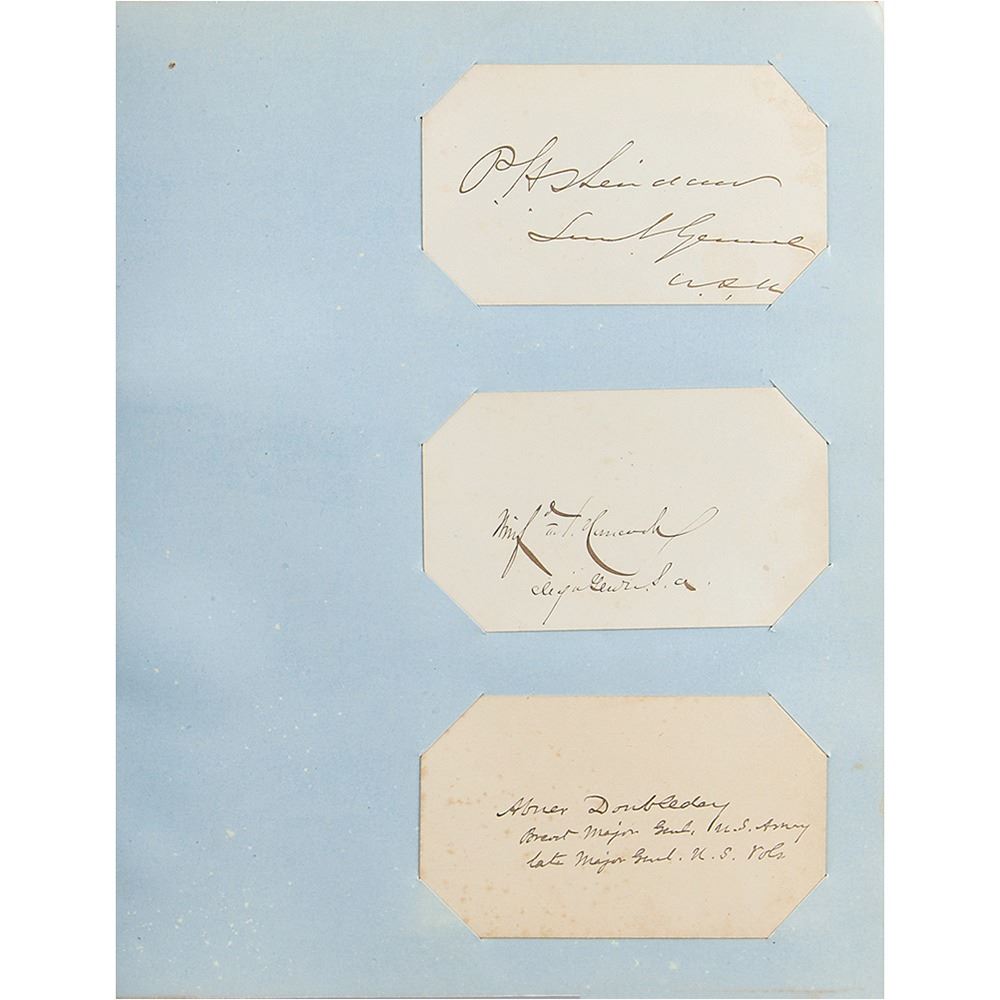 P. H. Sheridan
Lieut. General
U.S.A.
Winfd. S. Hancock
Maj Gen U.S.A.
Abner Doubleday
Brevt Major Genl. U.S. Army
late Major Genl. U.S. Vols